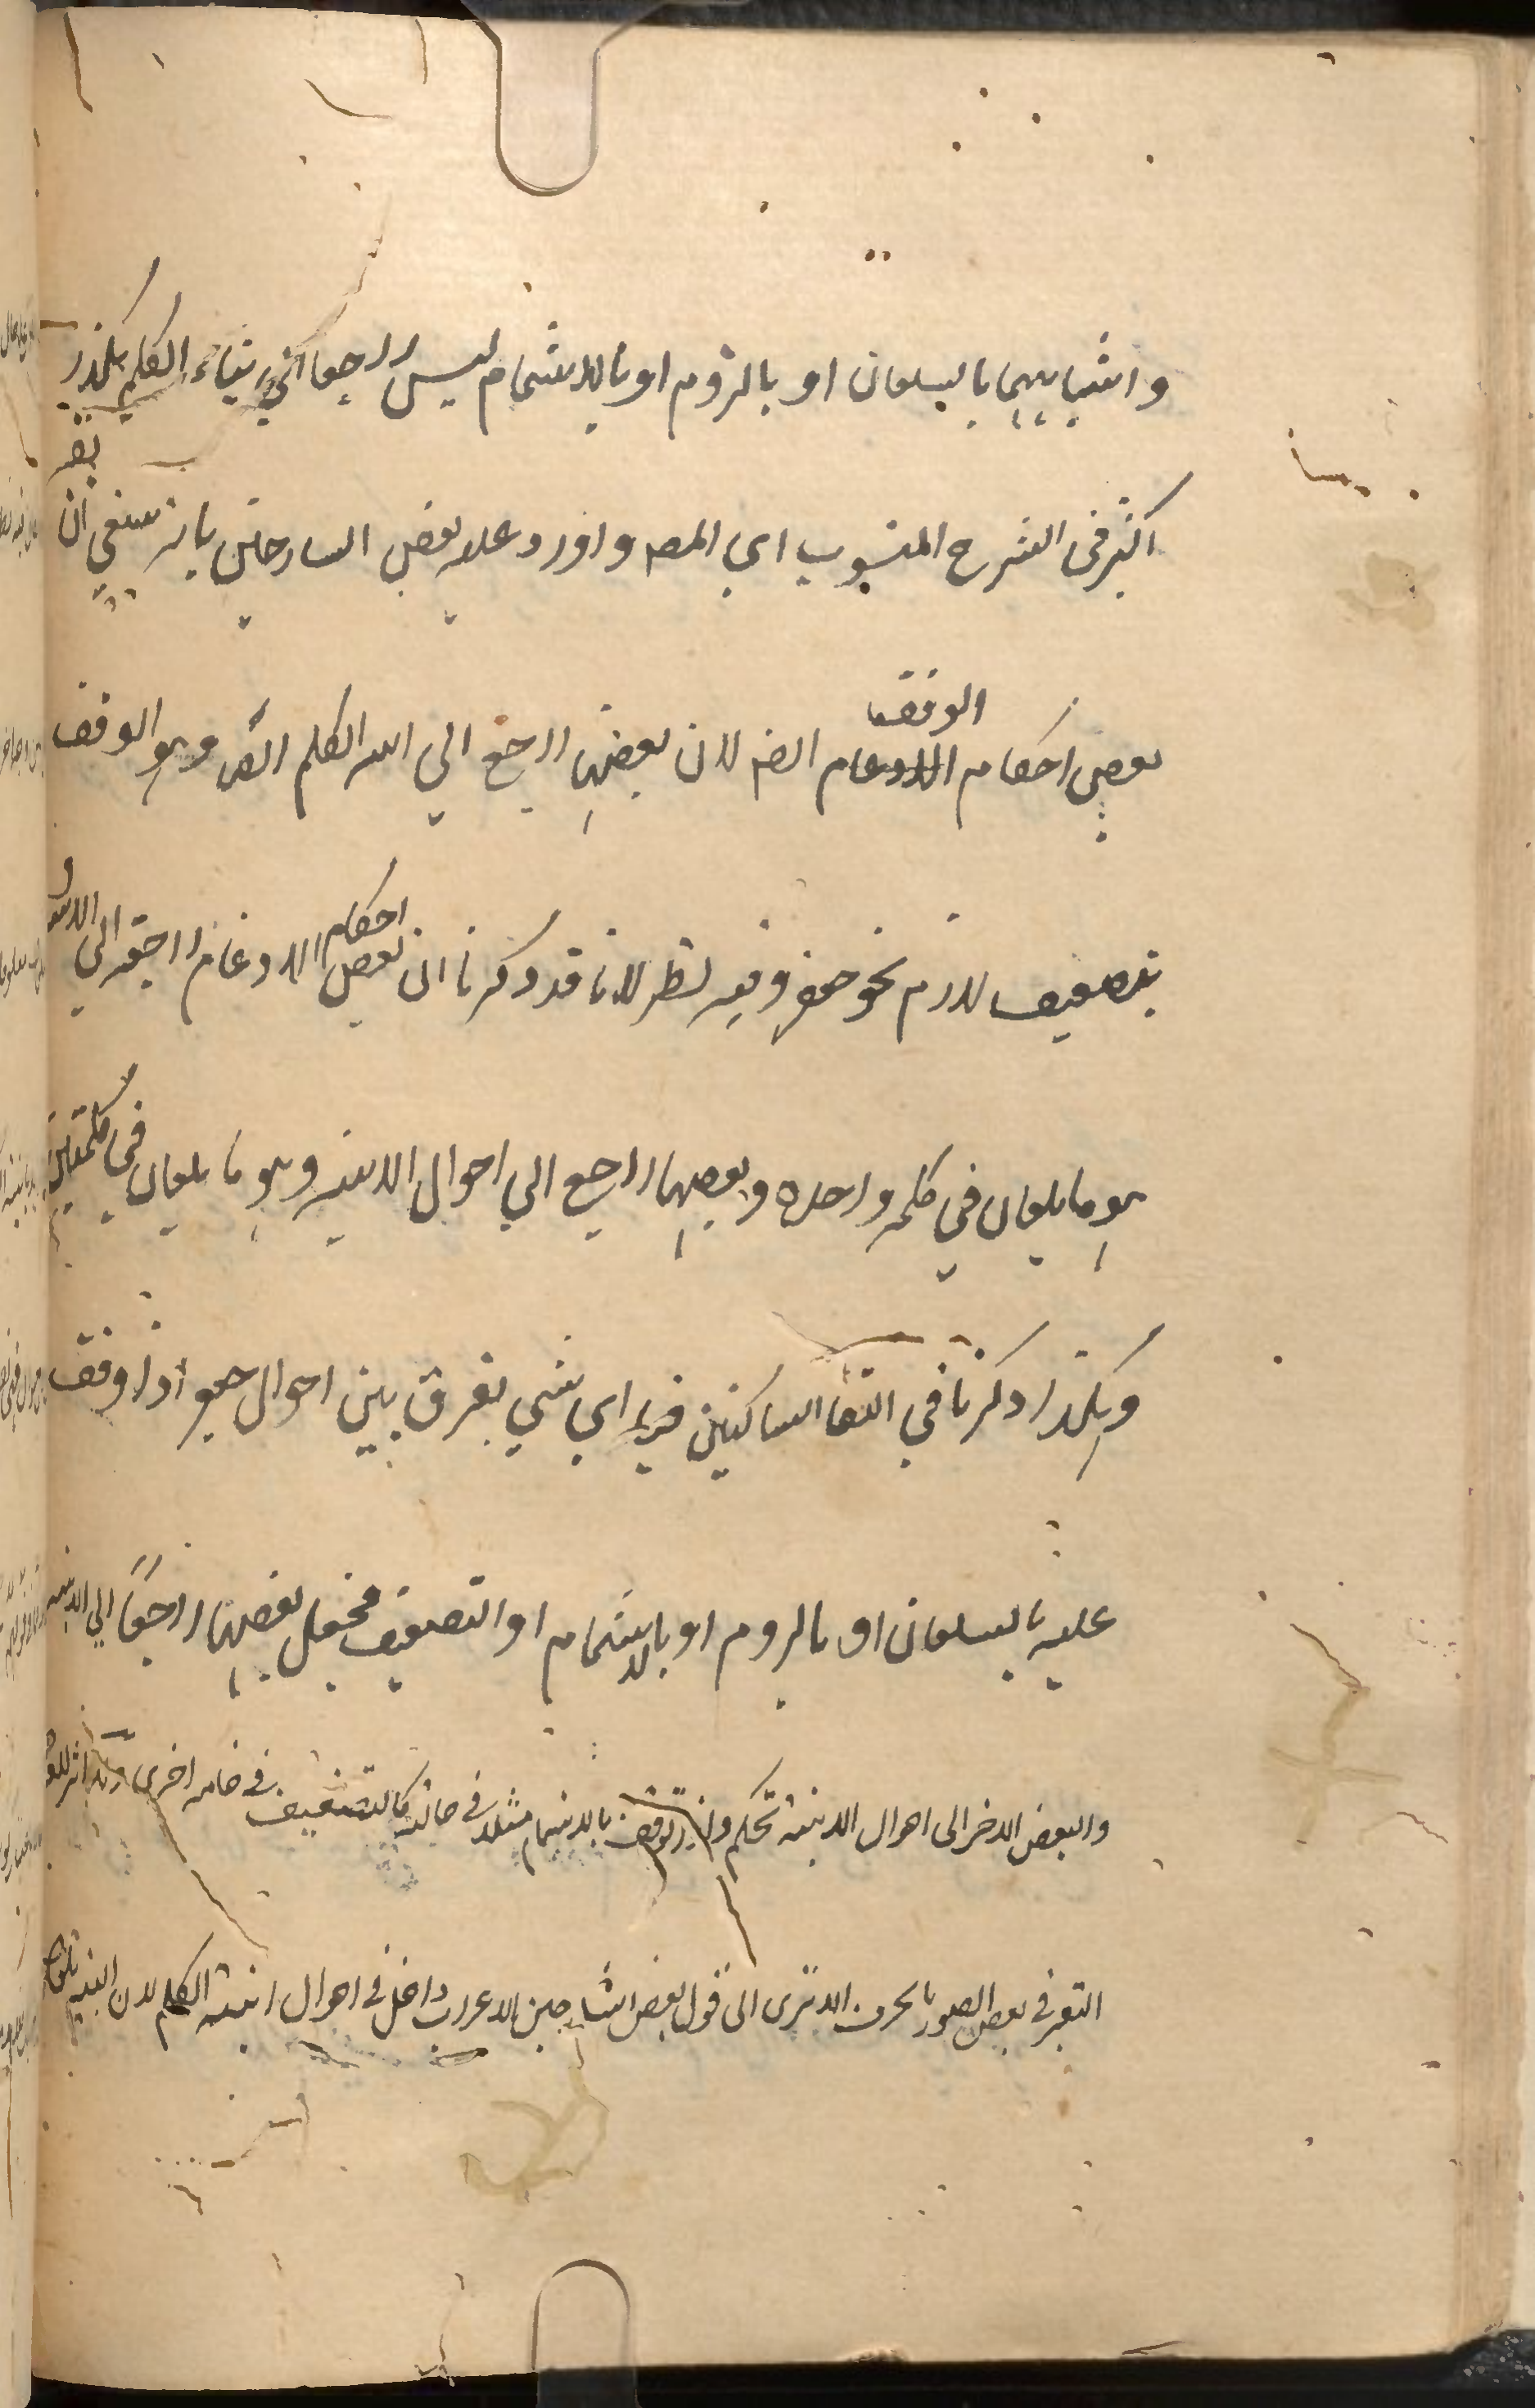 واشباههما بالسكان او بالروم او بالاشمام ليس راجعا الى بناء الكلم هكذا
اكثر فى الشرح المنسوب الى المصـ واورد عليه بعض الشارحين بانه ينبغي ان
يقـ
بعض احكام الوقف ايضـ لان بعضها راجع الي ابنية الكلم ايضـ وهو الوقف
بتضعيف للازم نحو جعفر وفيه نظر لانا قد ذكرنا ان بعض احكام الادغام راجعة الي
هو ما يكون في كلمة واحدة وبعضها راجع الي احوال الابنية وهو ما يكون في كلمتين
وهكذا ذكرنا في التقا الساكنين فح اي شي يفرق بين احوال جعفر اذا وقف
عليه بالسكان او بالروم او بالاشمام او التضعيف فجعل بعضها راجعا الي الابنية
والبعض الاخر الى احوال الابنية تحكم وان الوقف بالاشمام مثلا في حالة كالتضعيف في حالة اخرى
التغير في بعض الصور بالحرف الا ترى الى قول بعض الشارحين الاعراب داخل في احوال ابنية الكلم لان